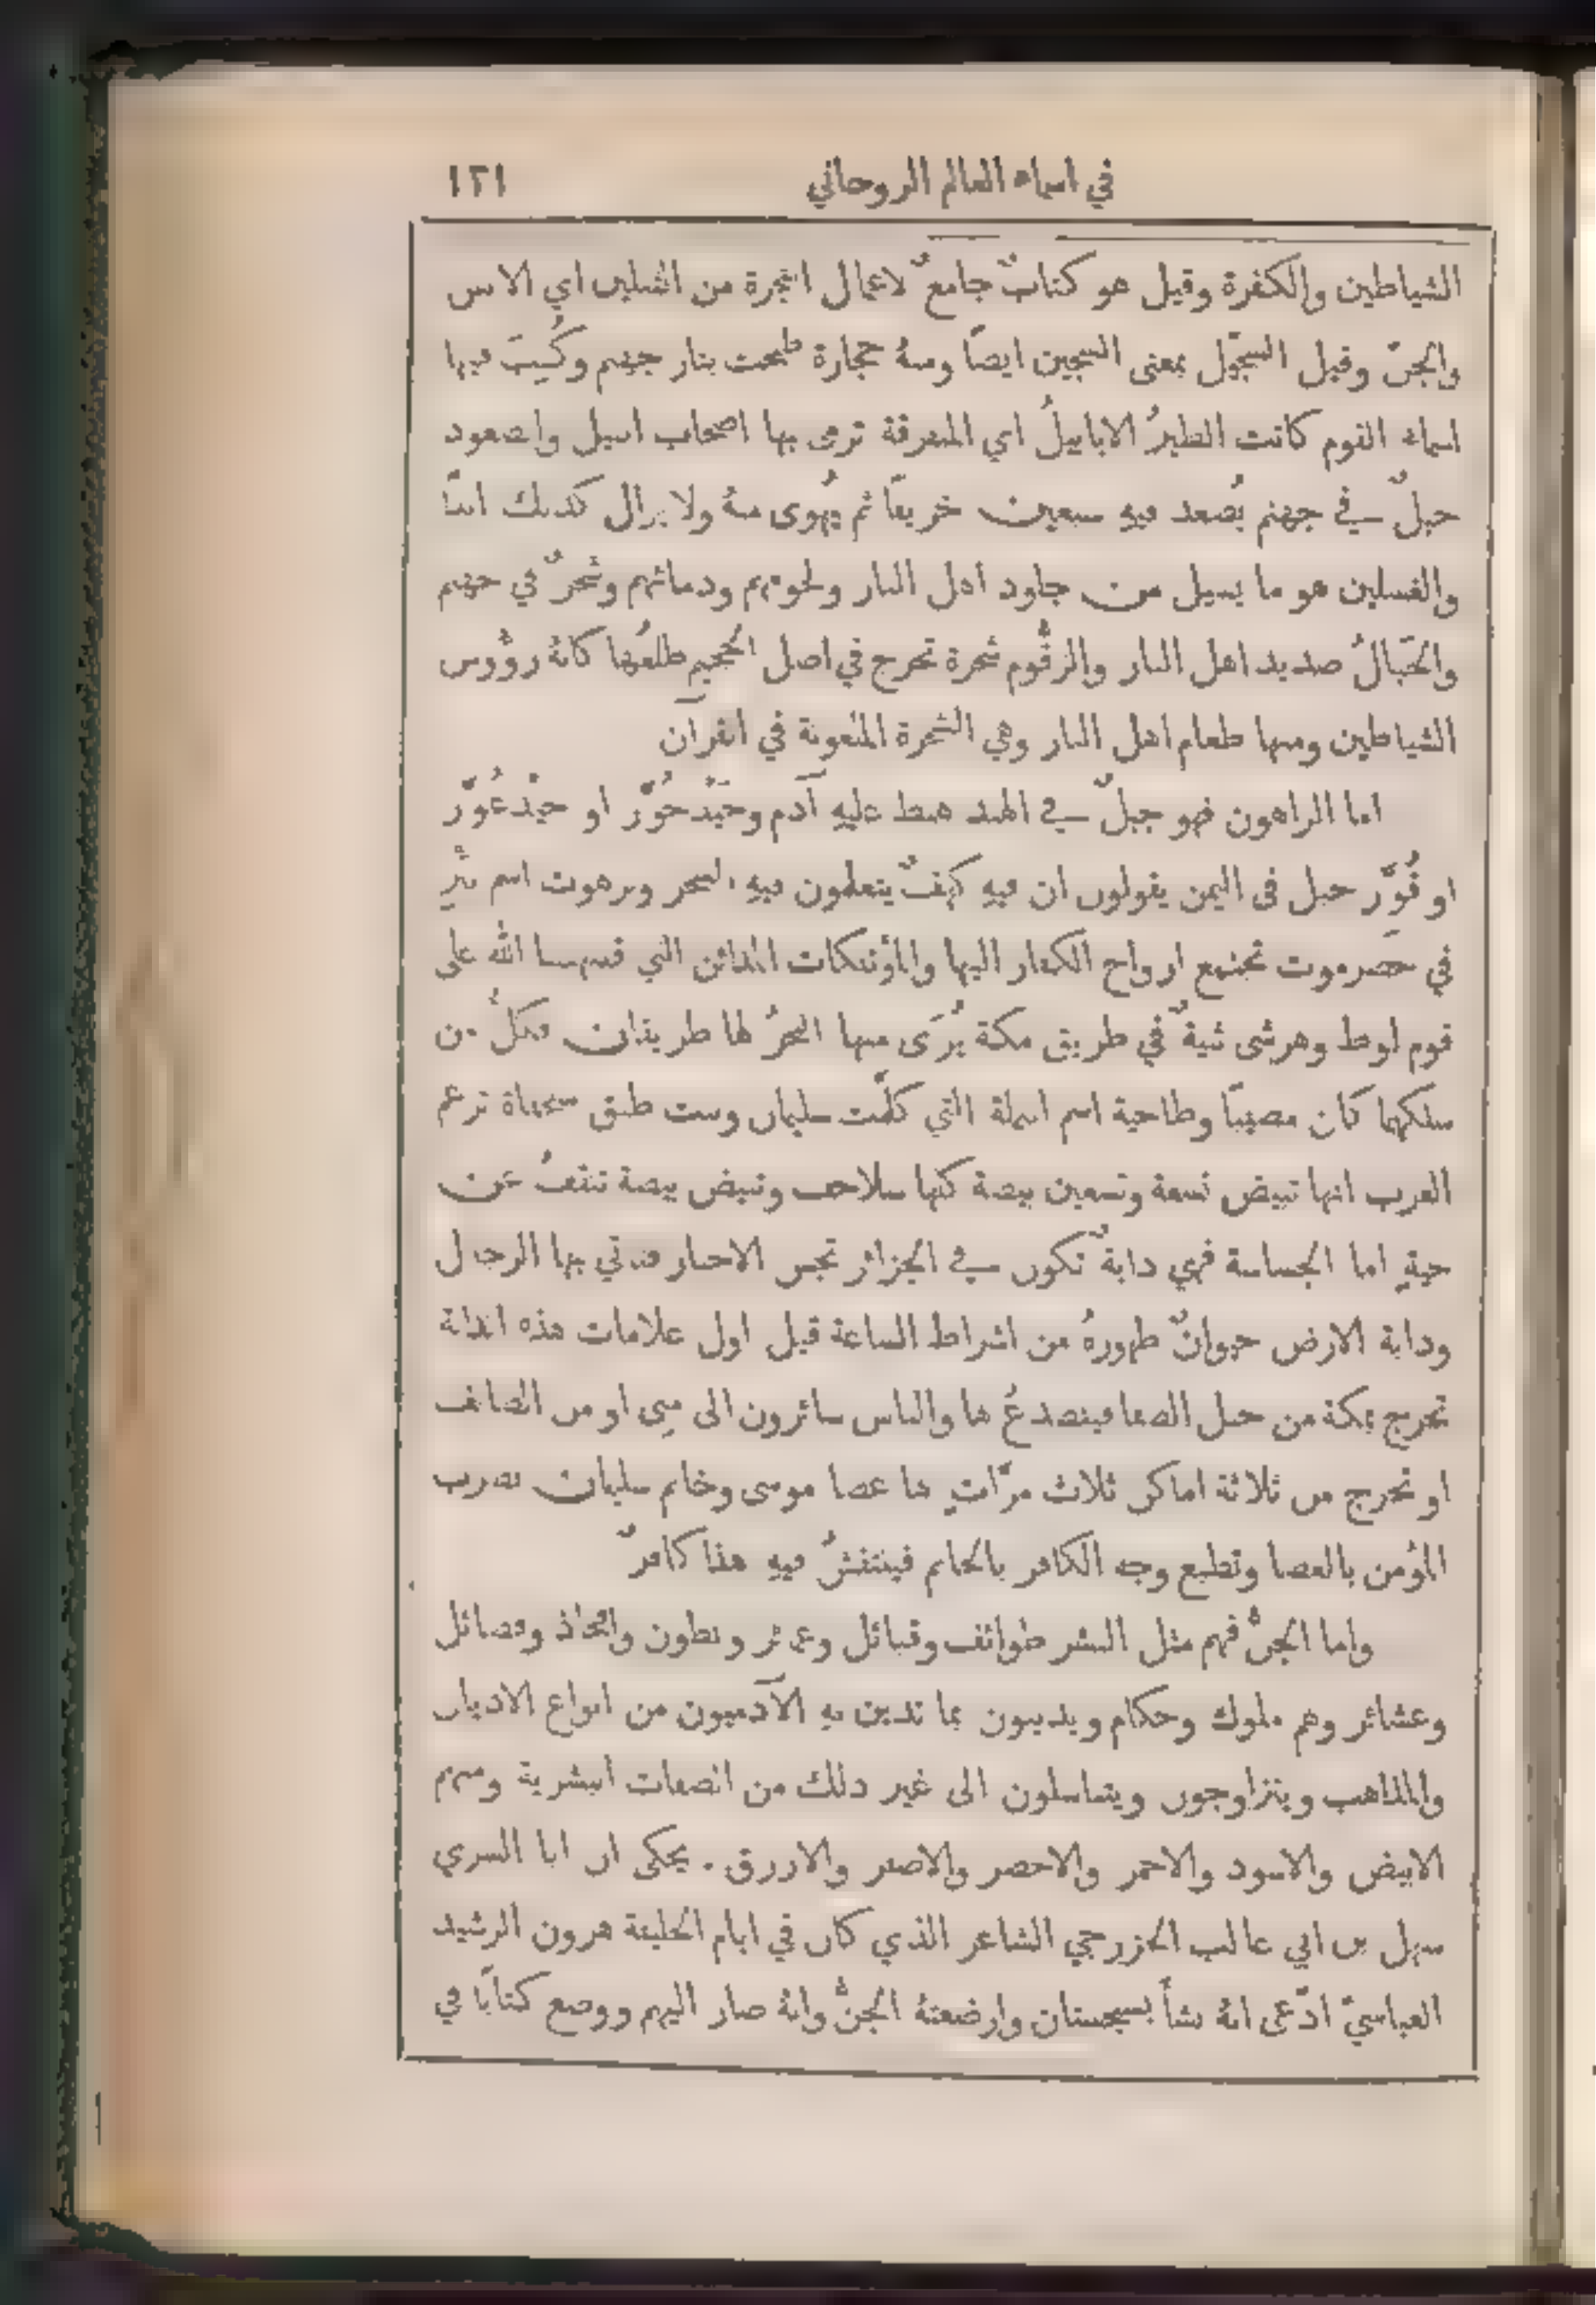 في اسماء العالم الروحاني ١٢١
الشياطين والكفرة وقيل هو كتابٌ جامعٌ لاعمال الفجرة من الثقلين اي الانس
والجنّ وقيل السجّيل بمعنى السجين ايضًا ومنهُ حجارة طبخت بنار جهنم وكُتِبَ فيها
اسماء القوم كانت الطيرُ الابابيلُ اي المتفرقة ترمى بها اصحاب الفيل والصعود
جبلٌ في جهنم يُصعد فيهِ سبعين خريفًا ثم يُهوى منهُ ولا يزال كذلك ابدًا
والغسلين هو ما يسيل من جلود اهل النار ولحومهم ودمائهم وشجرٌ في جهنم
والخَبالُ صديد اهل النار والزقُّوم شجرة تخرج في اصل الجحيم طلعُها كانهُ رؤُوس
الشياطين ومنها طعام اهل النار وهي الشجرة الملعونة في القرآن
اما الراهون فهو جبلٌ في الهند هبط عليهِ آدم وحَيْدحُوَّر او حيْدعُوَّر
او قُوَّر جبل في اليمن يقولون ان فيهِ كهفٌ يتعلمون فيهِ السحر وبرهوت اسم بئرٍ
في حضرموت تجتمع ارواح الكفار اليها والمؤتفكات المدائن التي قلبها الله على
قوم لوط وهرشى ثنيةٌ في طريق مكة يُرَى منها البحرُ لها طريقان فكلُّ من
سلكهما كان مصيبًا وطاحية اسم النملة التي كلَّمت سليمان وبنت طبق سلحفاة تزعم
العرب انها تبيض تسعة وتسعين بيضة كلها سلاحف وتبيض بيضة تنقفُ عن
حيةٍ اما الجساسة فهي دابةٌ تكون في الجزائر تجس الاخبار فتاتي بها الدجال
ودابة الارض حيوانٌ ظهورهُ من اشراط الساعة قيل اول علامات هذه الدابة
تخرج بمكة من جبل الصفا فينصدعُ لها والناس سائرون الى مِنى او من الطائف
او تخرج من ثلاثة اماكن ثلاث مرَّاتٍ لها عصا موسى وخاتم سليمان تضرب
المؤمن بالعصا وتطبع وجه الكافر بالخاتم فينتقشُ فيهِ هذا كافرٌ
واما الجنُّ فهم مثل البشر طوائف وقبائل وعمائر وبطون وافخاذ وفصائل
وعشائر وهم ملوك وحكام ويدينون بما تدين بهِ الآدميون من انواع الاديان
والمذاهب ويتزاوجون ويتناسلون الى غير ذلك من الصفات البشرية ومنهم
الابيض والاسود والاحمر والاخضر والاصفر والازرق. يحكى ان ابا السري
سهل بن ابي غالب الخزرجي الشاعر الذي كان في ايام الخليفة هرون الرشيد
العباسيّ ادّعى انهُ نشأَ بسجستان وارضعتهُ الجنُّ وانهُ صار اليهم ووضع كتابًا في